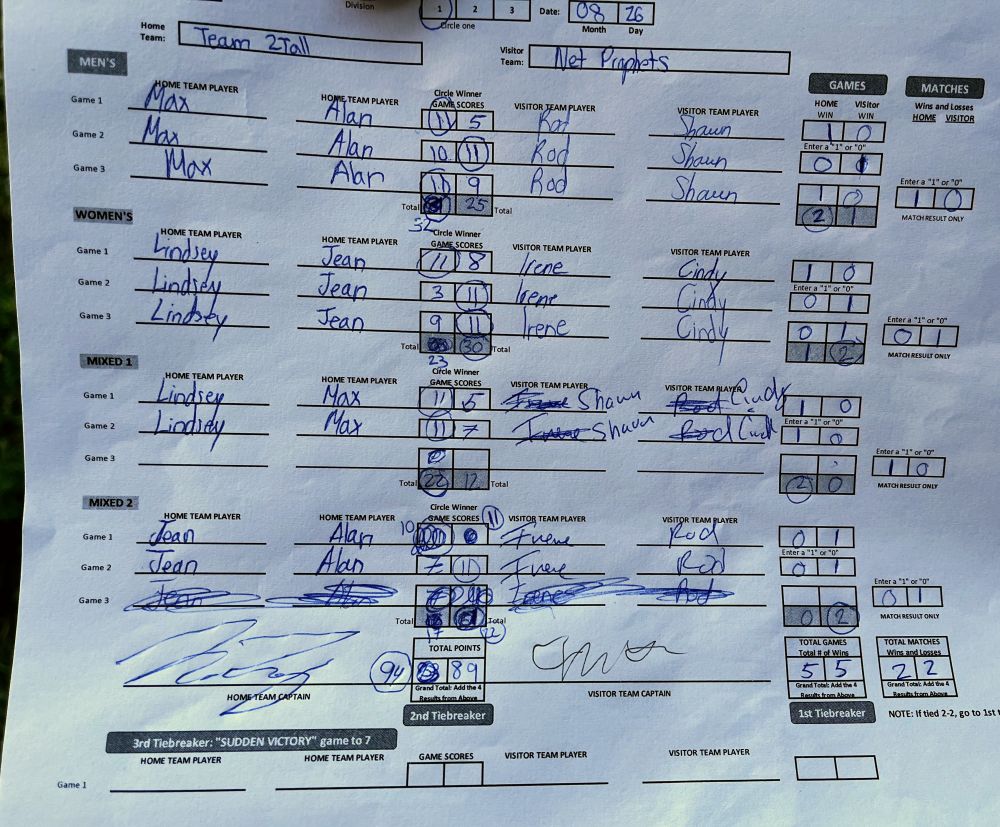 Division 1 2 3 Date: 08 26
Circle one Month Day
Home Team: Team 2Tall Visitor Team: Net Prophets
MEN'S GAMES MATCHES
HOME TEAM PLAYER HOME TEAM PLAYER Circle Winner GAME SCORES VISITOR TEAM PLAYER VISITOR TEAM PLAYER HOME WIN Visitor WIN Wins and Losses HOME VISITOR
Game 1 Max Alan 11 5 Rod Shawn 1 0
Enter a "1" or "0"
Game 2 Max Alan 10 11 Rod Shawn 0 1
Game 3 Max Alan 11 9 Rod Shawn 1 0 Enter a "1" or "0" 1 0
Total 32 25 Total 2 1 MATCH RESULT ONLY
WOMEN'S
HOME TEAM PLAYER HOME TEAM PLAYER Circle Winner GAME SCORES VISITOR TEAM PLAYER VISITOR TEAM PLAYER
Game 1 Lindsey Jean 11 8 Irene Cindy 1 0
Enter a "1" or "0"
Game 2 Lindsey Jean 3 11 Irene Cindy 0 1
Game 3 Lindsey Jean 9 11 Irene Cindy 0 1 Enter a "1" or "0" 0 1
Total 23 30 Total 1 2 MATCH RESULT ONLY
MIXED 1
HOME TEAM PLAYER HOME TEAM PLAYER Circle Winner GAME SCORES VISITOR TEAM PLAYER VISITOR TEAM PLAYER
Game 1 Lindsey Max 11 5 Irene Shawn Rod Cindy 1 0
Enter a "1" or "0"
Game 2 Lindsey Max 11 7 Irene Shawn Rod 1 0
Game 3 0 Enter a "1" or "0" 1 0
Total 22 12 Total 2 0 MATCH RESULT ONLY
MIXED 2
HOME TEAM PLAYER HOME TEAM PLAYER Circle Winner GAME SCORES 11 VISITOR TEAM PLAYER VISITOR TEAM PLAYER
Game 1 Jean Alan 10 Irene Rod 0 1
Enter a "1" or "0"
Game 2 Jean Alan 7 11 Irene Rod 0 1
Game 3 Jean Irene Rod Enter a "1" or "0" 0 1
Total 17 22 Total 0 2 MATCH RESULT ONLY
TOTAL POINTS TOTAL GAMES Total # of Wins TOTAL MATCHES Wins and Losses
94 89 5 5 2 2
HOME TEAM CAPTAIN Grand Total: Add the 4 Results from Above VISITOR TEAM CAPTAIN Grand Total: Add the 4 Results from Above Grand Total: Add the 4 Results from Above
2nd Tiebreaker 1st Tiebreaker NOTE: If tied 2-2, go to 1st
3rd Tiebreaker: "SUDDEN VICTORY" game to 7
HOME TEAM PLAYER HOME TEAM PLAYER GAME SCORES VISITOR TEAM PLAYER VISITOR TEAM PLAYER
Game 1